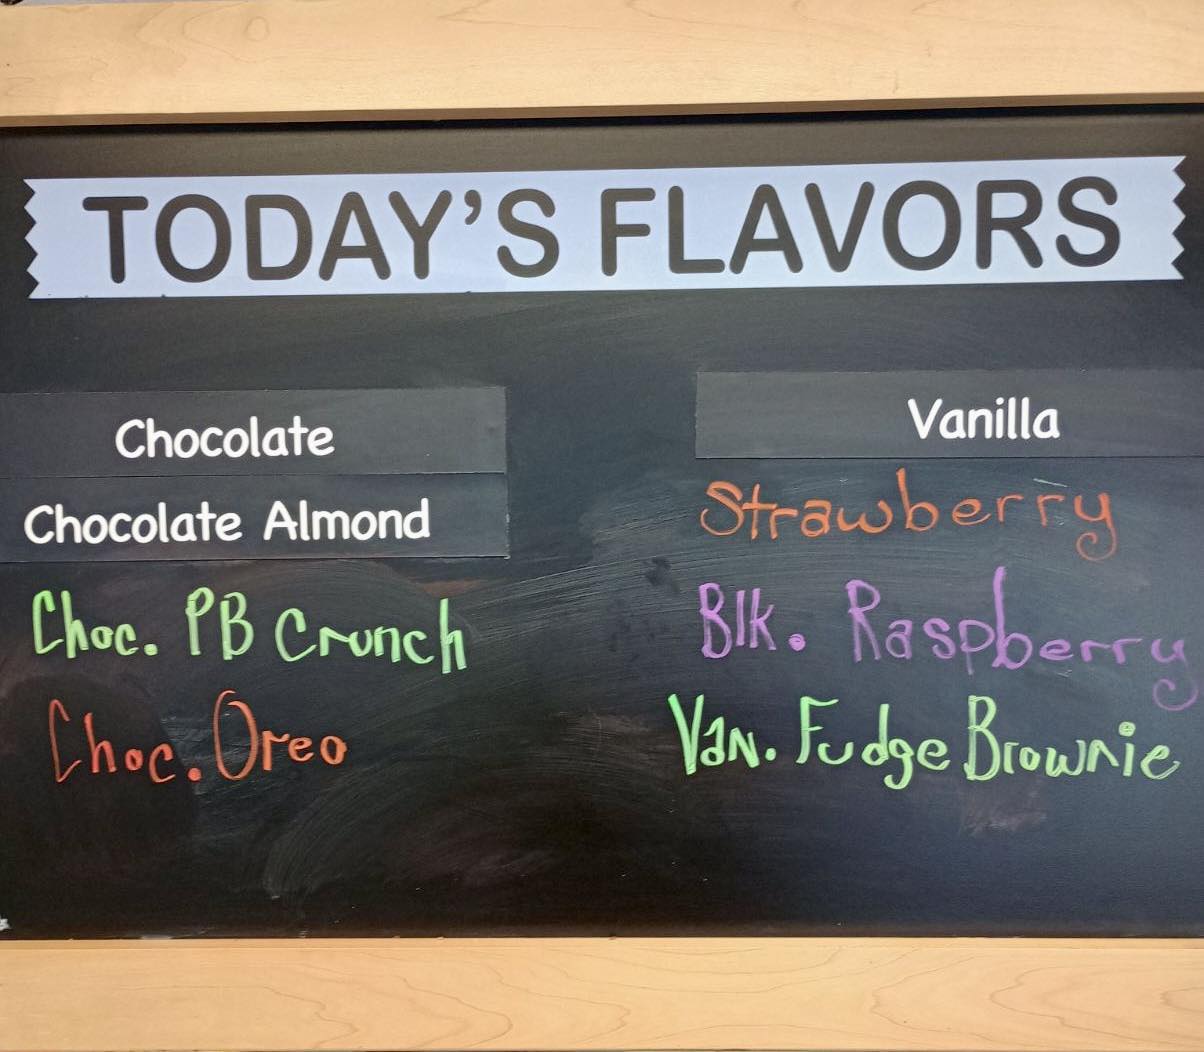 TODAY'S FLAVORS
Chocolate
Chocolate Almond
Choc. PB Crunch
Choc. Oreo
Vanilla
Strawberry
Blk. Raspberry
Van. Fudge Brownie